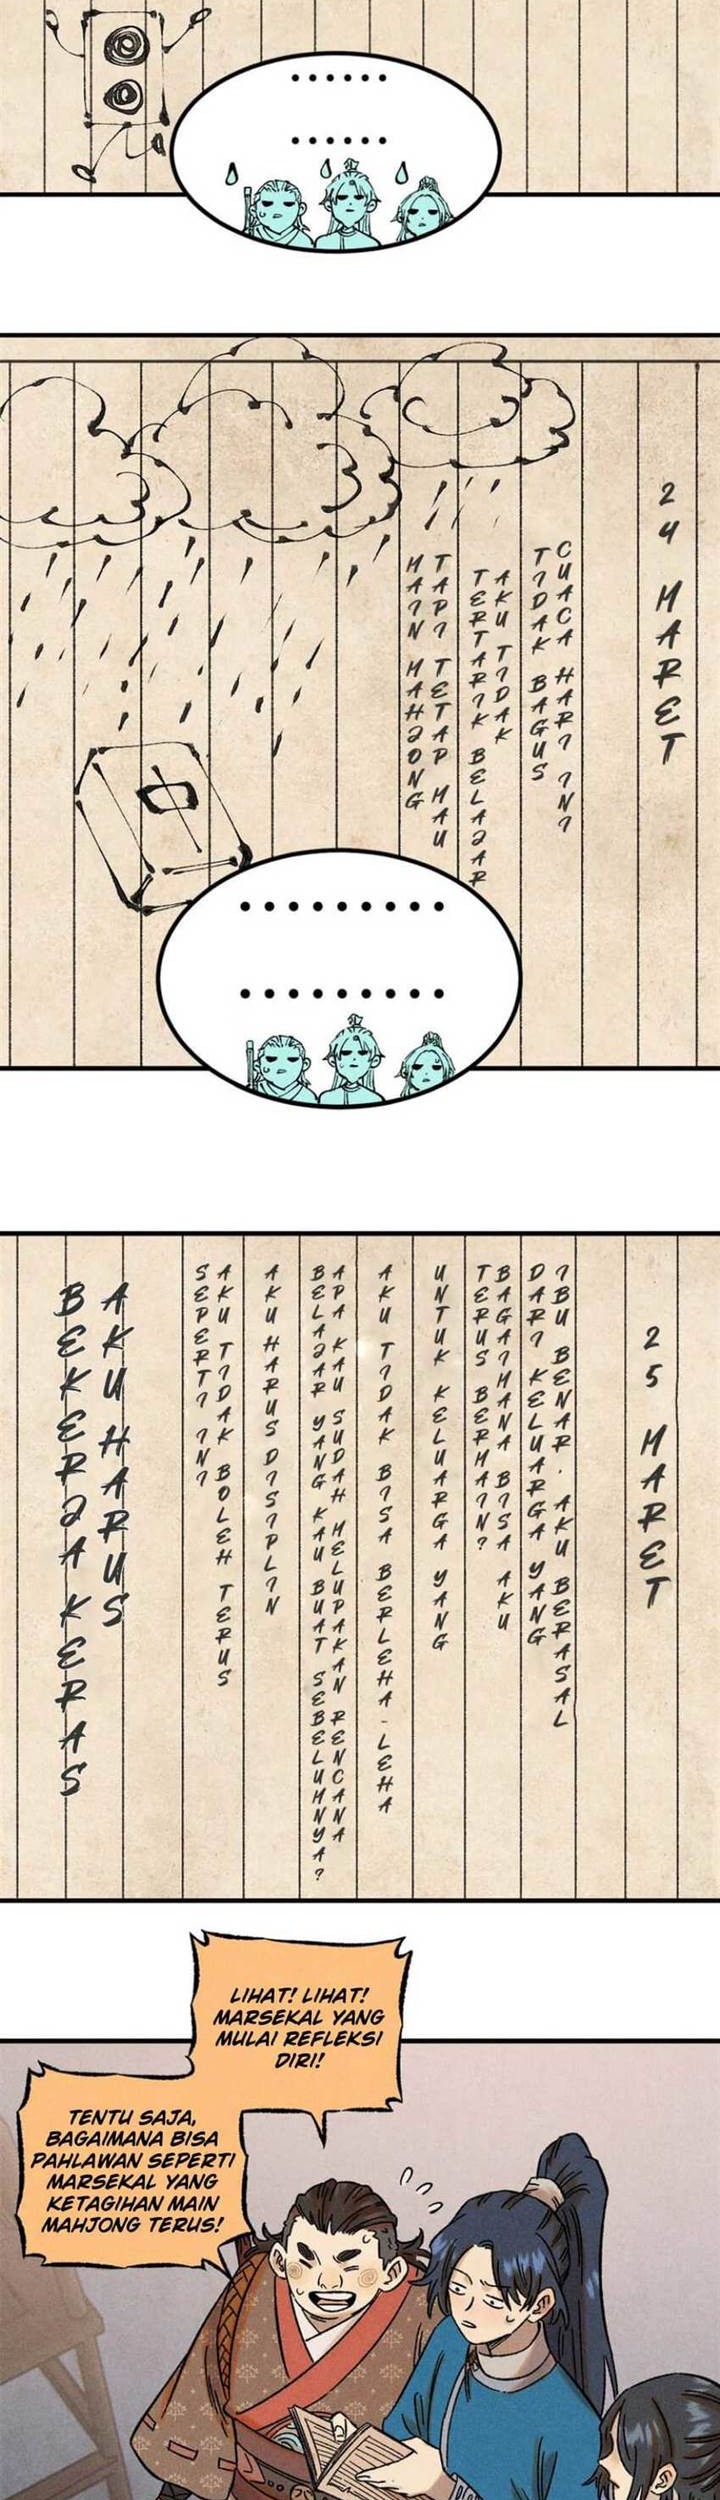 ......
......
24 MARET
CUACA HARI INI
TIDAK BAGUS
AKU TIDAK
TERTARIK BELAJAR
TAPI TETAP MAU
MAIN MAHJONG
中
.........
.........
25 MARET
IBU BENAR. AKU BERASAL
DARI KELUARGA YANG
BAGAIMANA BISA AKU
TERUS BERMAIN?
UNTUK KELUARGA YANG
AKU TIDAK BISA BERLEHA-LEHA
APA KAU SUDAH MELUPAKAN RENCANA
BELAJAR YANG KAU BUAT SEBELUMNYA?
AKU HARUS DISIPLIN
AKU TIDAK BOLEH TERUS
SEPERTI INI
AKU HARUS
BEKERJA KERAS
LIHAT! LIHAT!
MARSEKAL YANG
MULAI REFLEKSI
DIRI!
TENTU SAJA,
BAGAIMANA BISA
PAHLAWAN SEPERTI
MARSEKAL YANG
KETAGIHAN MAIN
MAHJONG TERUS!